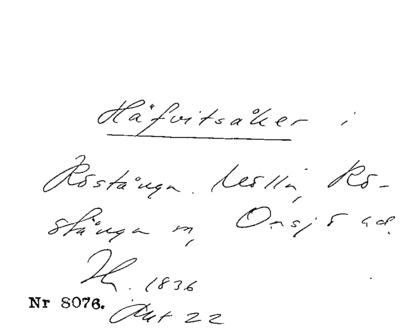 Håfvitsåker i
Röstånga. Mölla, Rö-
stånga sn, Onsjö hd.
Th. 1836
Nr 8076.
Akt 22